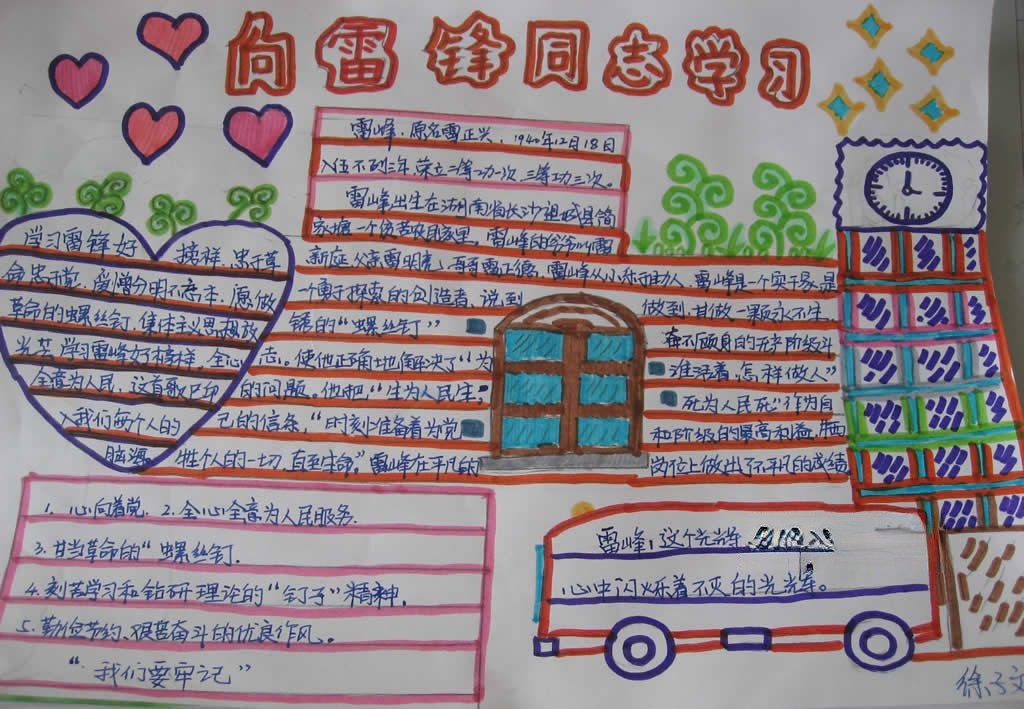 向雷锋同志学习
雷峰,原名雷正兴,1940年12月18日
入伍不到三年,荣立二等功一次,三等功三次。
雷峰出生在湖南省长沙望城县简
家塘一个贫苦农民家里,雷峰的爷爷叫雷
新庭,父亲雷明亮,哥哥雷正德,雷峰从小乐于助人,雷峰是一个实干家,是
一勇于探索的创造者,说到 做到,甘做一颗永不生
锈的“螺丝钉” 奋不顾身的无产阶级斗
志。使他正确地解决了“为 谁活着,怎样做人”
的问题。他把“生为人民生, 死为人民死”作为自
己的信条,“时刻准备着为党 和阶级的最高利益,牺
牲个人的一切,直至生命。”雷峰在平凡的 岗位上做出了不平凡的成绩
学习雷锋好 榜样,忠于革
命忠于党,爱憎分明不忘本,愿做
革命的螺丝钉,集体主义思想放
光芒,学习雷峰好榜样,全心
全意为人民,这首歌已印
入我们每个人的
脑海
1. 心向着党. 2. 全心全意为人民服务.
3. 甘当革命的“螺丝钉.
4. 刻苦学习和钻研理论的“钉子”精神,
5. 勤俭节约、艰苦奋斗的优良作风。
“我们要牢记”
雷峰,这个光辉
心中闪烁着不灭的光辉。
徐子文